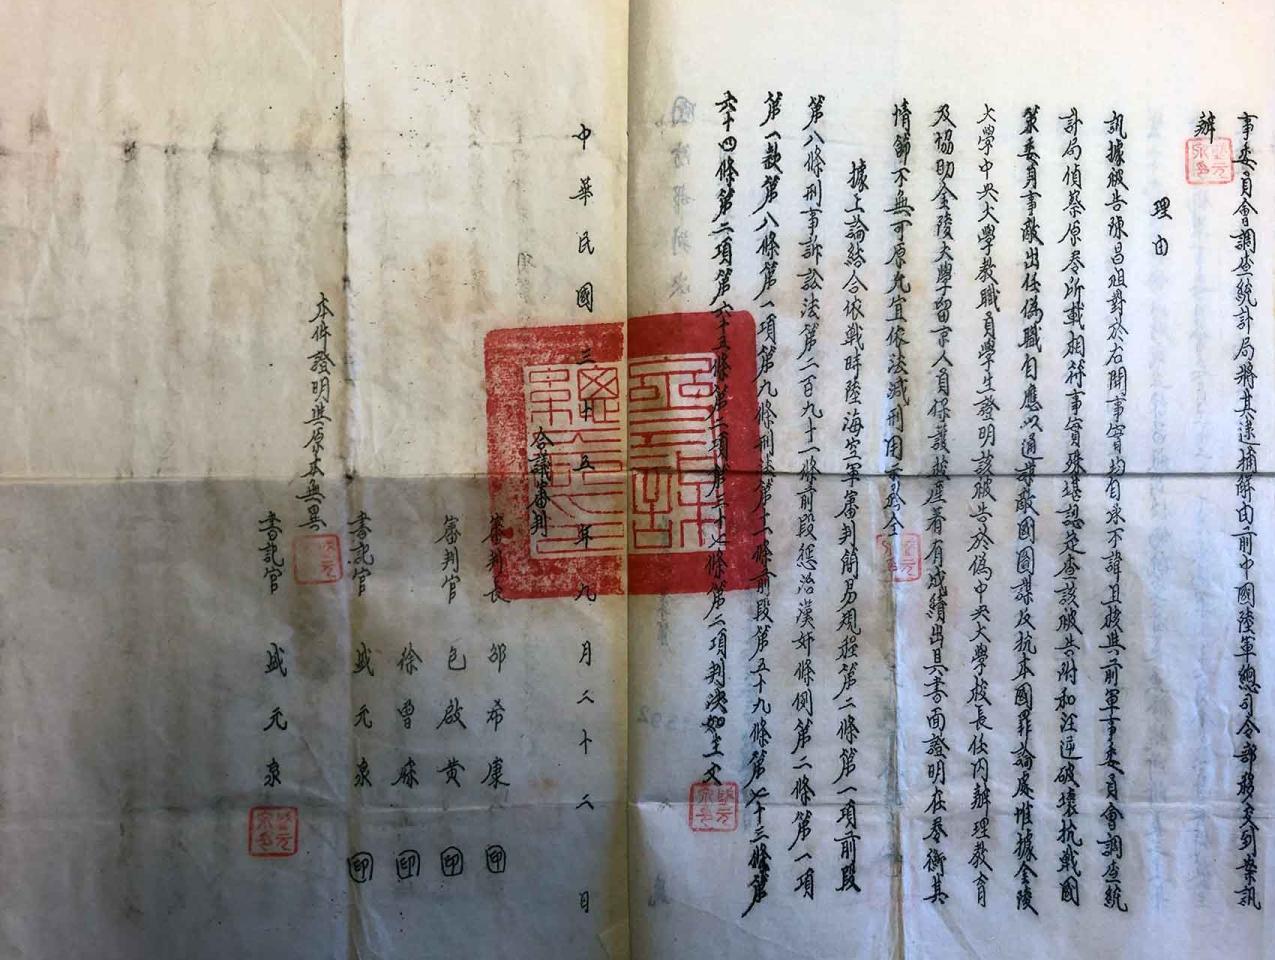 事委員會調查統計局將其逮捕解由前中國陸軍總司令部移交到案訊
辦
理由
訊據被告陳昌祖對於右開事實均自承不諱且核與前軍事委員會調查統
計局偵察原卷所載相符事實殊堪認定查該被告附和汪逆破壞抗戰國
策委身事敵出任偽職自應以通謀敵國圖謀反抗本國罪論處惟據金陵
大學中央大學教職員學生證明該被告於偽中央大學校長任內辦理教育
及協助金陵大學留京人員保護校產著有成績出具書面證明在卷衡其
情節不無可原允宜依法減刑用示矜全
據上論結合依戰時陸海空軍審判簡易規程第二條第一項前段
第八條刑事訴訟法第二百九十一條前段懲治漢奸條例第二條第一項
第一款第八條第一項第九條刑法第十一條前段第五十九條第七十三條第
六十四條第二項第六十五條第二項第三十七條第二項判決如主文
中華民國三十五年九月二十二日
合議審判
審判長 邵希康 印
審判官 包啟黃 印
徐曾森 印
書記官 盛元泉 印
本件證明與原本無異
書記官 盛元泉